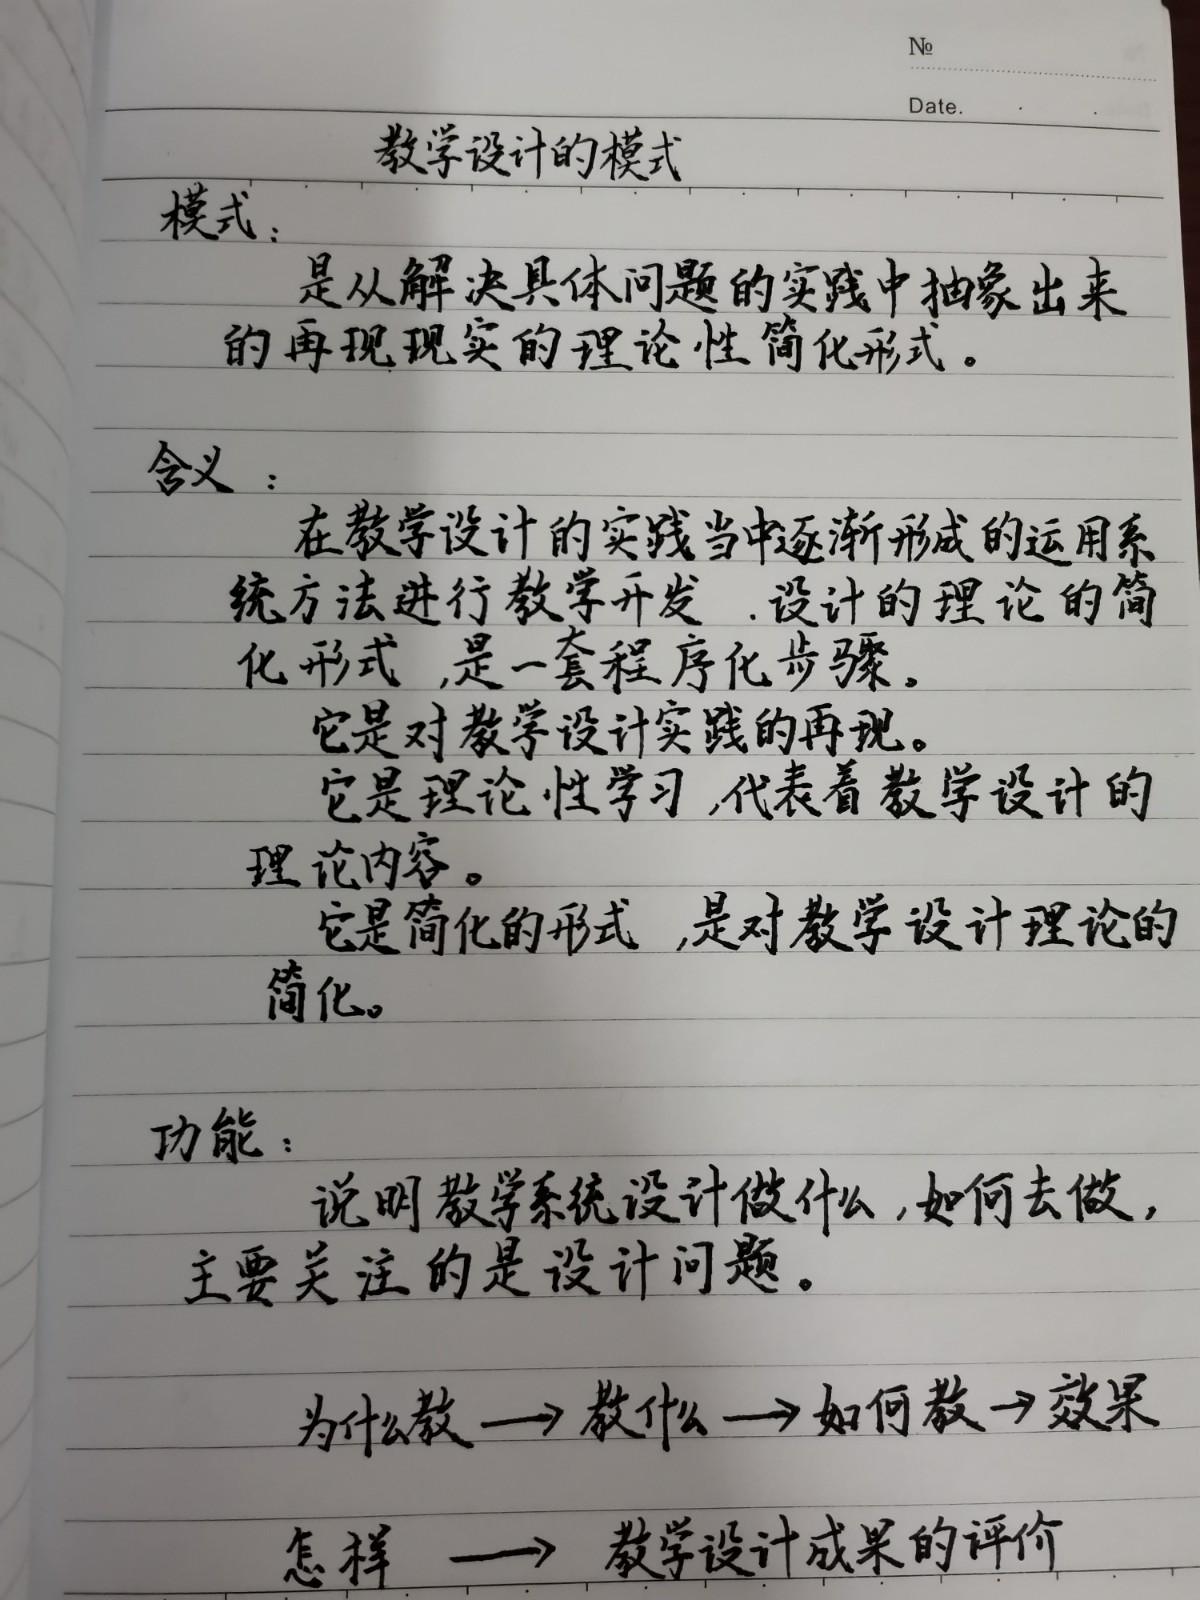 №
Date.
教学设计的模式
模式：
是从解决具体问题的实践中抽象出来
的再现现实的理论性简化形式。
含义：
在教学设计的实践当中逐渐形成的运用系
统方法进行教学开发、设计的理论的简
化形式，是一套程序化步骤。
它是对教学设计实践的再现。
它是理论性学习，代表着教学设计的
理论内容。
它是简化的形式，是对教学设计理论的
简化。
功能：
说明教学系统设计做什么，如何去做，
主要关注的是设计问题。
为什么教→教什么→如何教→效果
怎样→教学设计成果的评价